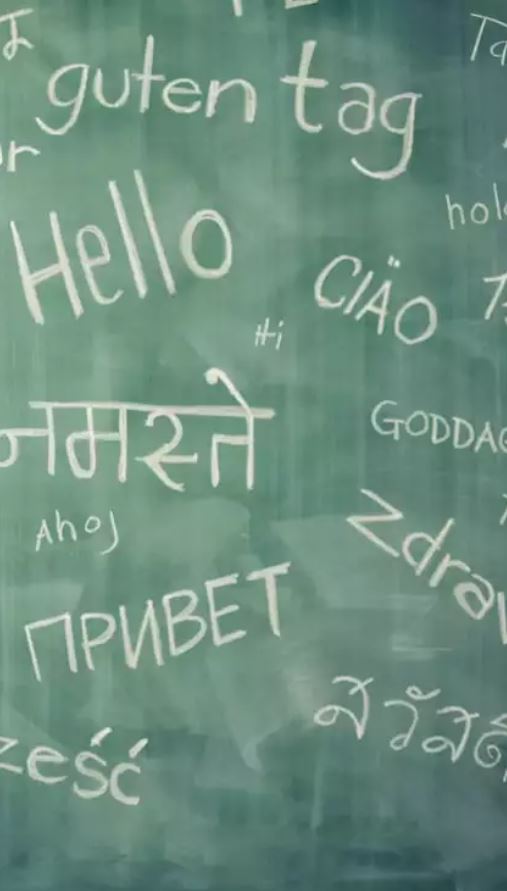 guten tag
Hello
hol
CIÄO
Hi
नमस्ते
GODDAG
Ahoj
Zdrav
ПРИВЕТ
สวัสดี
ześć